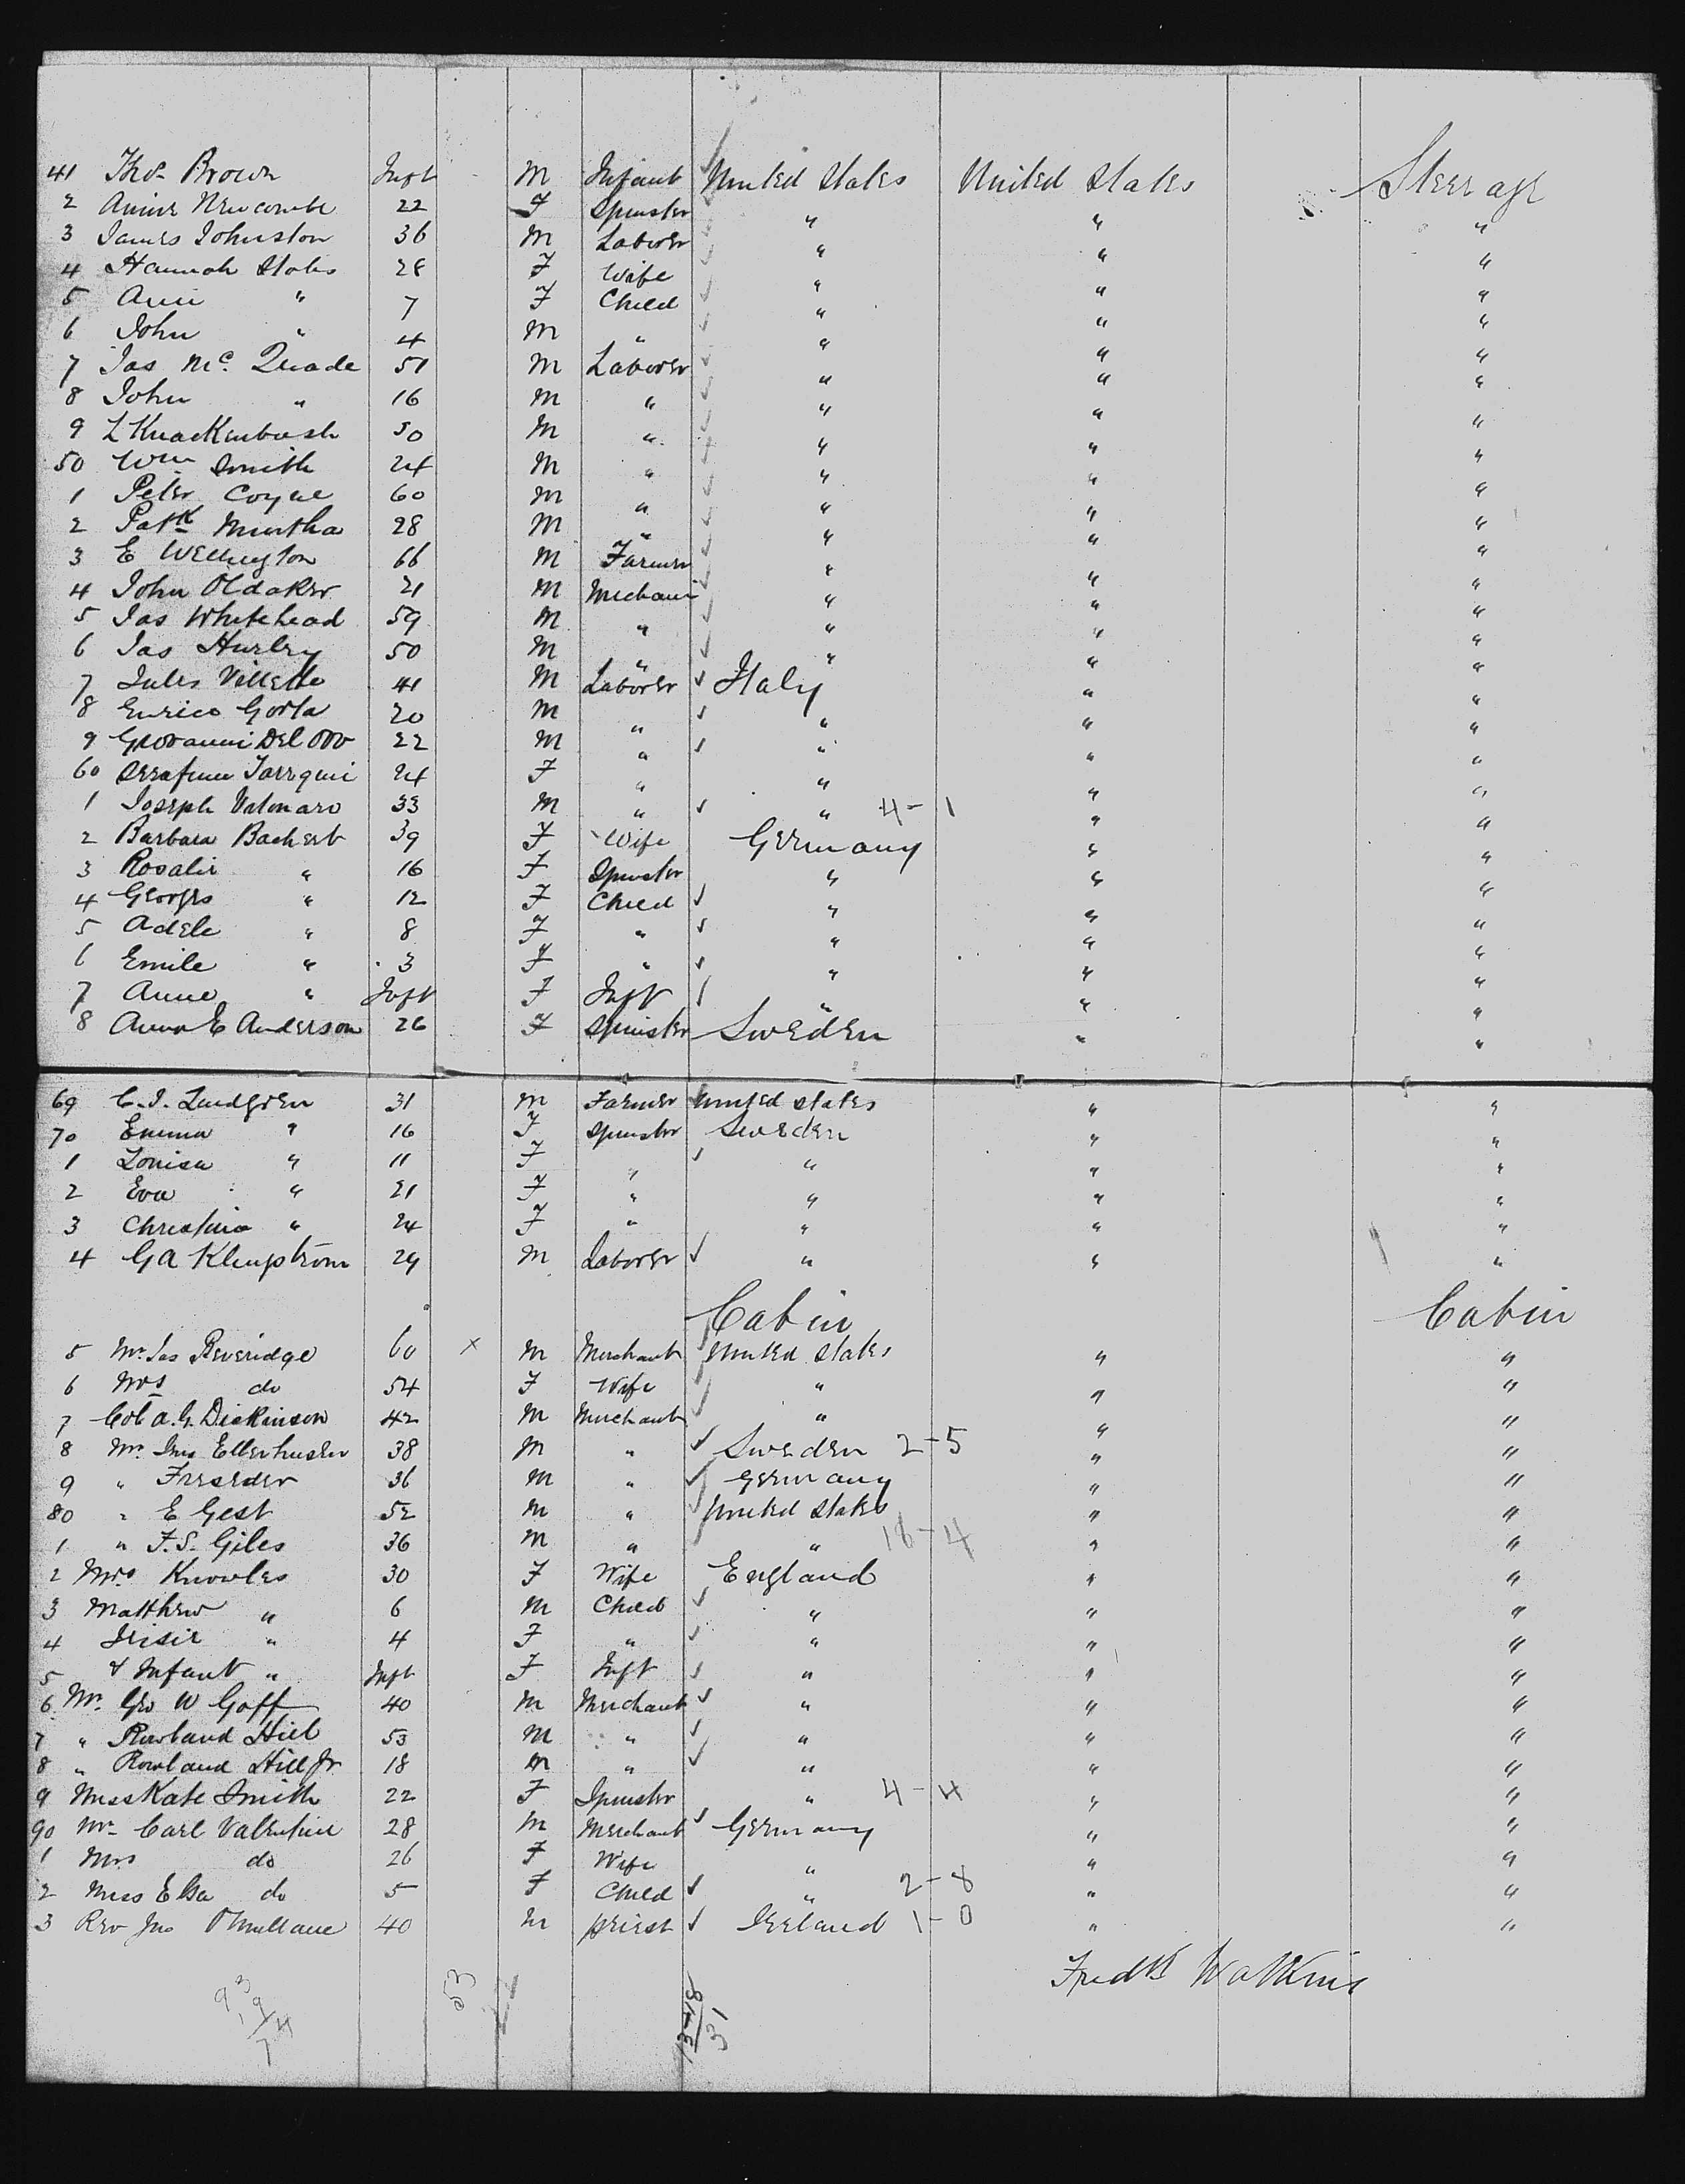 41 Thos Brown Inft M Infant United States United States Steerage
2 Annie Newcombe 22 F Spinster " " "
3 James Johnston 36 M Laborer " " "
4 Hannah Stokes 28 F Wife " " "
5 Ann " 7 F Child " " "
6 John " 4 M " " " "
7 Jas Mc Quade 51 M Laborer " " "
8 John " 16 M " " " "
9 L Knackenbush 50 M " " " "
50 Wm Smith 24 M " " " "
1 Peter Coyne 60 M " " " "
2 Patk Murtha 28 M " " " "
3 E Wellington 66 M Farmer " " "
4 John Oldaker 21 M Mechani " " "
5 Jas Whitehead 59 M " " " "
6 Jas Hurley 50 M " " " "
7 Jules Villette 41 M Laborer Italy " "
8 Enrico Gorla 20 M " " " "
9 Giovanni Del Oro 22 M " " " "
60 24 F " " " "
1 Joseph 33 M " " 4-1 " "
2 Barbara Bachert 39 F Wife Germany " "
3 Rosalie " 16 F Spinster " " "
4 Georges " 12 F Child " " "
5 Adele " 8 F " " " "
6 Emile " 3 F " " " "
7 Anne " Inft F Inft " " "
8 Anna E Anderson 26 F Spinster Sweden " "
69 C. J. Lundgren 31 M Farmer United States " "
70 Emma " 16 F Spinster Sweden " "
1 Louisa " 11 F " " " "
2 Eva " 21 F " " " "
3 Christina " 24 F " " " "
4 G A Klingström 29 M Laborer " " "
Cabin Cabin
5 Mr Jas Beveridge 60 x M Merchant United States " "
6 Mrs do 54 F Wife " " "
7 Col A. G. Dickinson 42 M Merchant " " "
8 Mr Jno Ellerhusen 38 M " Sweden 2-5 " "
9 " 36 M " Germany " "
80 " E Gest 52 M " United States " "
1 " F. S. Giles 36 M " " 18-4 " "
2 Mrs Knowles 30 F Wife England " "
3 Matthew " 6 M Child " " "
4 " 4 F " " " "
5 & Infant " Inft F Inft " " "
6 Mr Geo W Goff 40 M Merchant " " "
7 " Rowland Hill 53 M " " " "
8 " Rowland Hill Jr 18 M " " " "
9 Miss Kate Smith 22 F Spinster " 4-4 " "
90 Mr Carl Valentine 28 M Merchant Germany " "
1 Mrs do 26 F Wife " " "
2 Miss Elsa do 5 F Child " 2-8 " "
3 Rev Jno O'Mullane 40 M priest Ireland 1-0 " "
Fredk Watkins
93
19
74
53
22
13-18
31